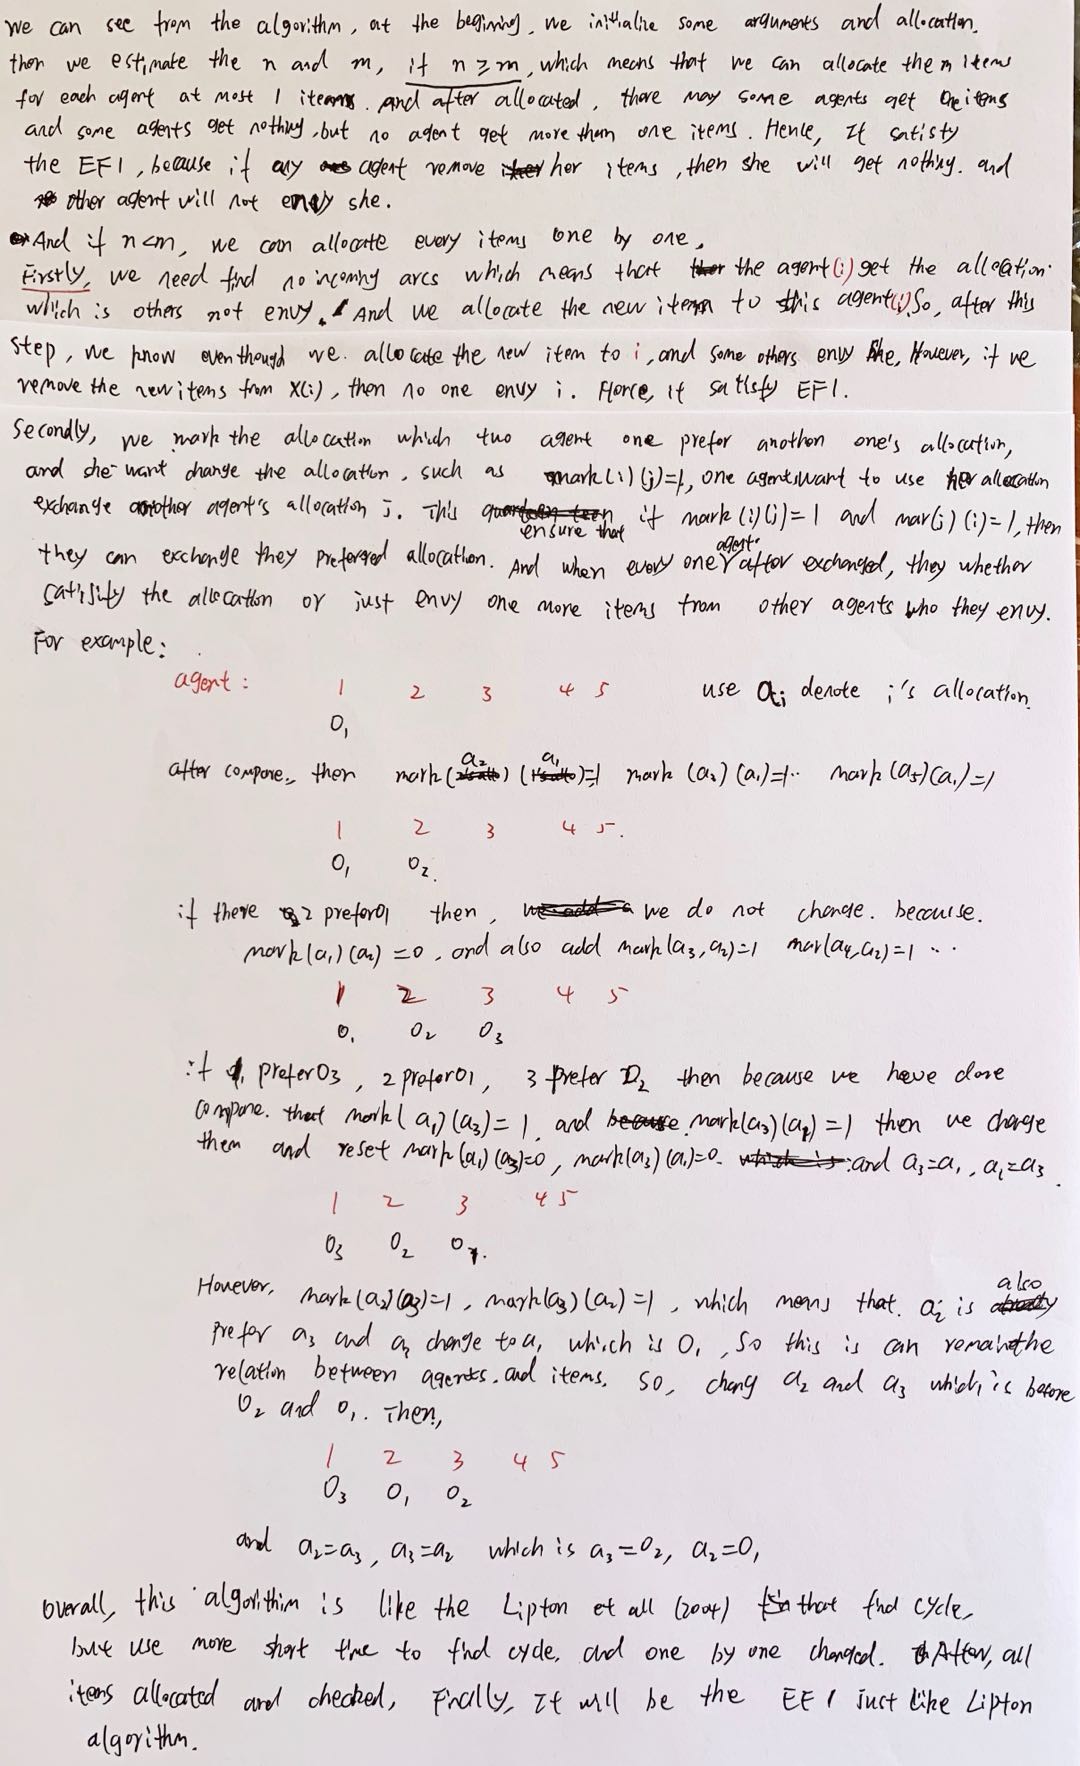 We can see from the algorithm, at the beginning, we initialize some arguments and allocation.
then we estimate the n and m, if n ≥ m, which means that we can allocate the m items
for each agent at most 1 items. And after allocated, there may some agents get one items
and some agents get nothing, but no agent get more than one items. Hence, It satisfy
the EF1, because if any agent remove her items, then she will get nothing. and
other agent will not envy she.
And if n<m, we can allocate every items one by one,
Firstly, we need find no incoming arcs which means that the agent(i) get the allocation
which is others not envy. And we allocate the new item to this agent(i). So, after this
step, we know even though we allocate the new item to i, and some others envy she, However, if we
remove the new items from X(i), then no one envy i. Hence, it satisfy EF1.
Secondly, we mark the allocation which two agent one prefer another one's allocation,
and she want change the allocation, such as mark(i)(j)=1, one agent i want to use her allocation
exchange another agent's allocation j. This ensure that if mark(i)(j)=1 and mar(j)(i)=1, then
they can exchange they preferred allocation. And when every one agent after exchanged, they whether
satisfy the allocation or just envy one more items from other agents who they envy.
For example:
agent: 1 2 3 4 5 use ai denote i's allocation.
O1
after compare, then mark(a2)(a1)=1 mark(a3)(a1)=1·· mark(a5)(a1)=1
1 2 3 4 5.
O1 O2.
if there 2 prefer O1 then, we do not change. because.
mark(a1)(a2)=0, and also add mark(a3,a2)=1 mar(a4,a2)=1 ···
1 2 3 4 5
O1 O2 O3
if 1 prefer O3, 2 prefer O1, 3 prefer O2 then because we have done
compare. that mark(a1)(a3)=1, and mark(a3)(a1)=1 then we change
them and reset mark(a1)(a3)=0, mark(a3)(a1)=0. and a3=a1, a1=a3.
1 2 3 4 5
O3 O2 O1.
However, mark(a2)(a3)=1, mark(a3)(a2)=1, which means that. a2 is also
prefer a3 and a3 change to a1 which is O1, So this is can remain the
relation between agents and items. So, chang a2 and a3 which is before
O2 and O1. Then,
1 2 3 4 5
O3 O1 O2
and a2=a3, a3=a2 which is a3=O2, a2=O1
Overall, this algorithim is like the Lipton et all (2004) that find cycle,
but use more short time to find cycle, and one by one changed. After, all
items allocated and checked, Finally, It will be the EF1 just like Lipton
algorithm.